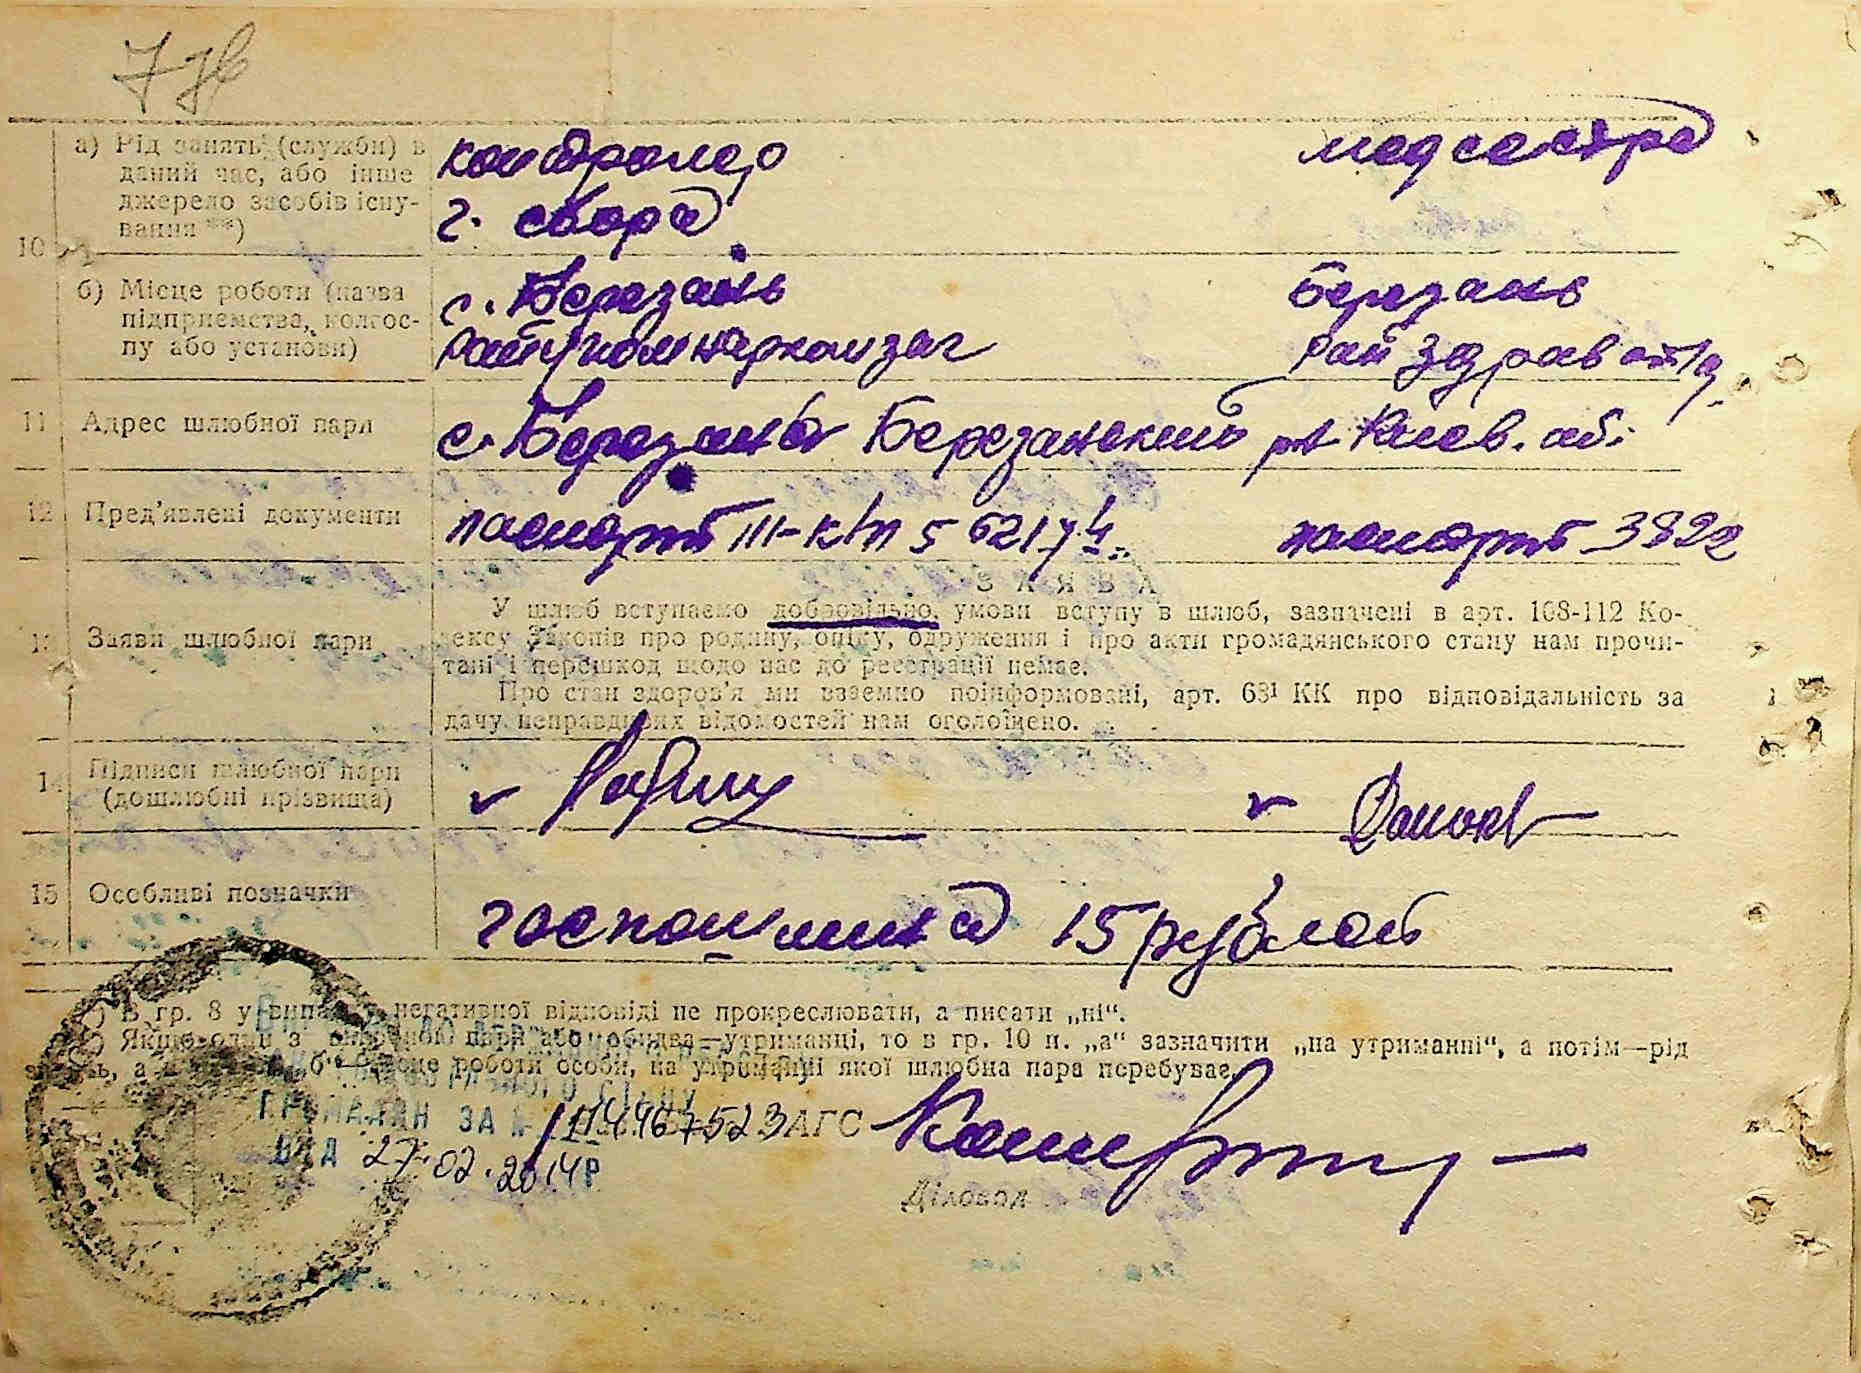 а) Рід занять (служби) в
даний час, або інше
джерело засобів існу-
вання **)
контролер
г. сбора
медсестра
10
б) Місце роботи (назва
підприємства, колгос-
пу або установи)
с. Березань
Березань
райздрав
11 Адрес шлюбної пари
с. Березань Березанский Киев. обл.
12 Пред'явлені документи
паспорт 562174
паспорт 3822
ЗАЯВА
У шлюб вступаємо добровільно, умови вступу в шлюб, зазначені в арт. 108-112 Ко-
дексу Законів про родину, опіку, одруження і про акти громадянського стану нам прочи-
тані і перешкод щодо нас до реєстрації немає.
Про стан здоров'я ми взаємно поінформовані, арт. 68¹ КК про відповідальність за
дачу неправдивих відомостей нам оголошено.
13 Заяви шлюбної пари
14 Підписи шлюбної пари
(дошлюбні прізвища)
15 Особливі позначки
госпошлина 15 рублей
*) В гр. 8 у випадку негативної відповіді не прокреслювати, а писати „ні“.
**) Якщо один з шлюбної пари або обидва—утриманці, то в гр. 10 п. „а“ зазначити „на утриманні“, а потім—рід
занять, а в п. „б“ місце роботи особи, на утриманні якої шлюбна пара перебуває.
ГРОМАДЯН ЗА №
ЗАГС
ВІД 27.02.2014Р
Діловод